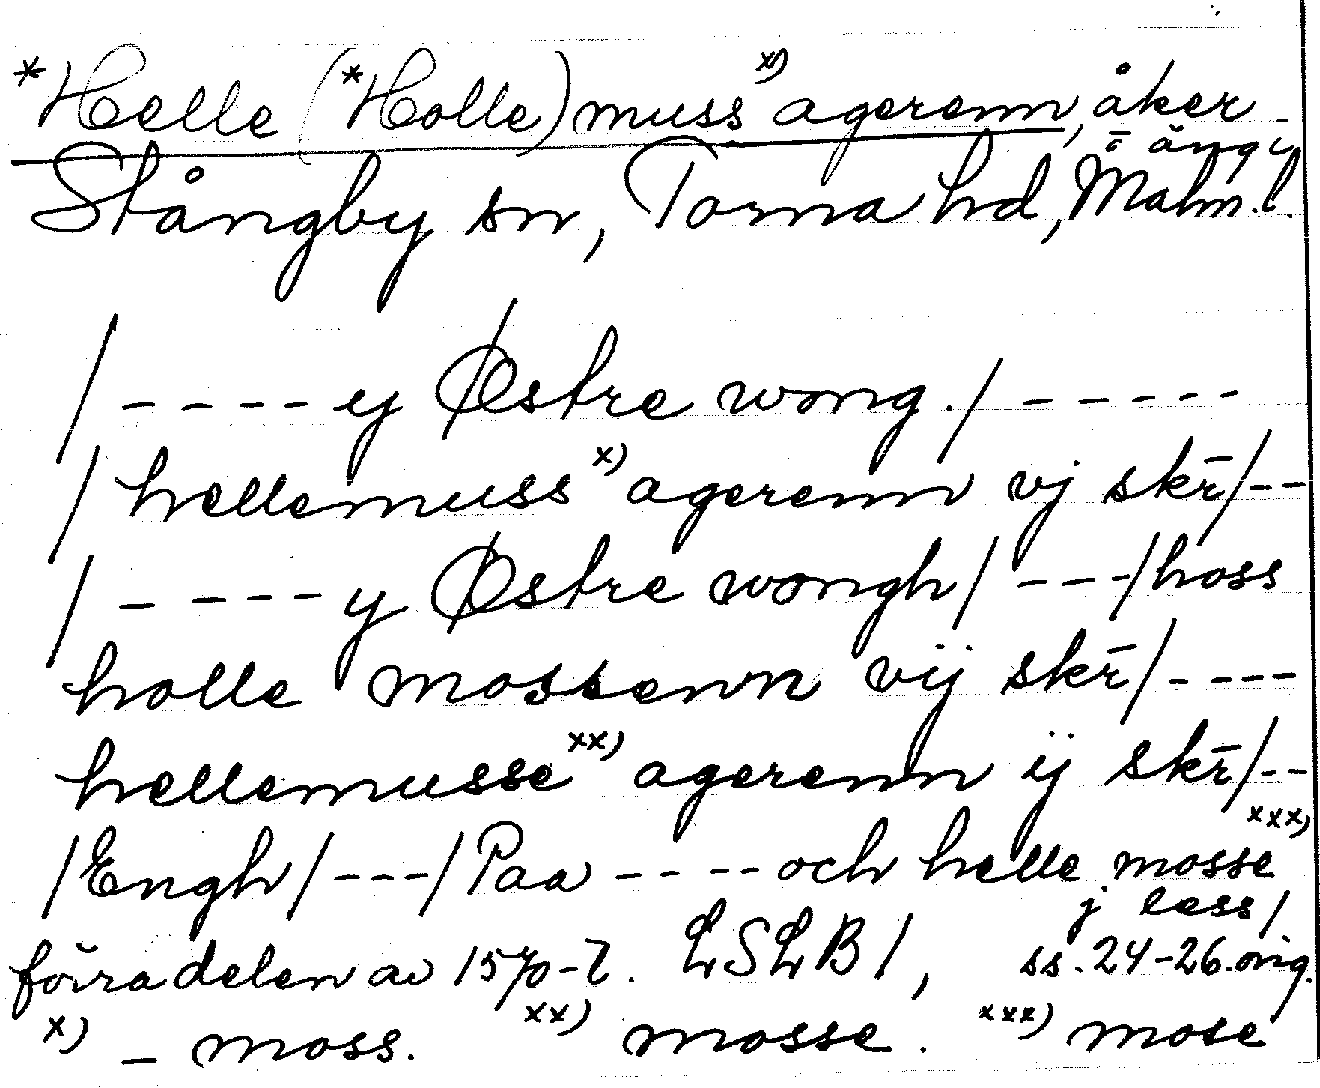 *Helle (*Holle) muss x) agerenn, åker -
i äng i
Stångby sn, Torna hd, Malm. l.
/ - - - - y Østre wong ./ - - - - -
/ hellemuss x) agerenn vj skr̄ / - -
/ - - - - y Østre wongh / - - - / hoss
holle mossenn vij skr̄ / - - - -
hellemusse xx) agerenn ij skr̄ / - -
/ Engh / - - - / Paa - - - - och helle mosse xxx)
j less /
förra delen av 1570-t. LSLB 1, ss. 24-26. orig.
x) - moss. xx) mosse. xxx) mose